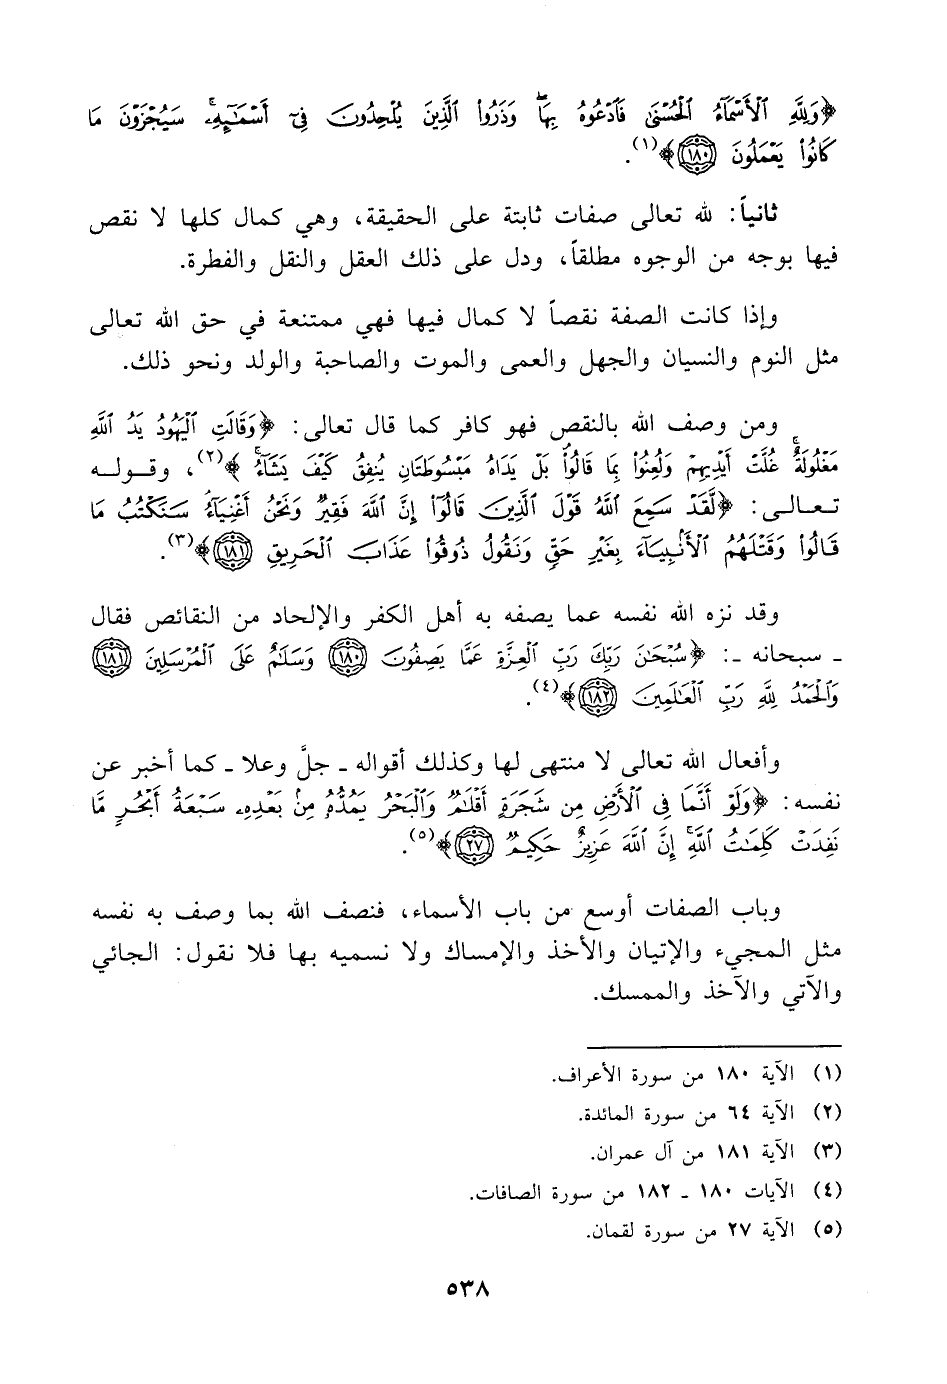 ﴿وَلِلَّهِ ٱلْأَسْمَآءُ ٱلْحُسْنَىٰ فَٱدْعُوهُ بِهَا ۖ وَذَرُوا۟ ٱلَّذِينَ يُلْحِدُونَ فِىٓ أَسْمَٰٓئِهِۦ ۚ سَيُجْزَوْنَ مَا
كَانُوا۟ يَعْمَلُونَ ﴿١٨٠﴾﴾(١).
ثانياً: لله تعالى صفات ثابتة على الحقيقة، وهي كمال كلها لا نقص
فيها بوجه من الوجوه مطلقاً، ودل على ذلك العقل والنقل والفطرة.
وإذا كانت الصفة نقصاً لا كمال فيها فهي ممتنعة في حق الله تعالى
مثل النوم والنسيان والجهل والعمى والموت والصاحبة والولد ونحو ذلك.
ومن وصف الله بالنقص فهو كافر كما قال تعالى: ﴿وَقَالَتِ ٱلْيَهُودُ يَدُ ٱللَّهِ
مَغْلُولَةٌ ۚ غُلَّتْ أَيْدِيهِمْ وَلُعِنُوا۟ بِمَا قَالُوا۟ ۘ بَلْ يَدَاهُ مَبْسُوطَتَانِ يُنفِقُ كَيْفَ يَشَآءُ ۚ ﴾(٢)، وقوله
تعالى: ﴿لَّقَدْ سَمِعَ ٱللَّهُ قَوْلَ ٱلَّذِينَ قَالُوٓا۟ إِنَّ ٱللَّهَ فَقِيرٌ وَنَحْنُ أَغْنِيَآءُ ۘ سَنَكْتُبُ مَا
قَالُوا۟ وَقَتْلَهُمُ ٱلْأَنۢبِيَآءَ بِغَيْرِ حَقٍّ وَنَقُولُ ذُوقُوا۟ عَذَابَ ٱلْحَرِيقِ ﴿١٨١﴾﴾(٣).
وقد نزه الله نفسه عما يصفه به أهل الكفر والإلحاد من النقائص فقال
ـ سبحانه ـ: ﴿سُبْحَٰنَ رَبِّكَ رَبِّ ٱلْعِزَّةِ عَمَّا يَصِفُونَ ﴿١٨٠﴾ وَسَلَٰمٌ عَلَى ٱلْمُرْسَلِينَ ﴿١٨١﴾
وَٱلْحَمْدُ لِلَّهِ رَبِّ ٱلْعَٰلَمِينَ ﴿١٨٢﴾﴾(٤).
وأفعال الله تعالى لا منتهى لها وكذلك أقواله ـ جلَّ وعلا ـ كما أخبر عن
نفسه: ﴿وَلَوْ أَنَّمَا فِى ٱلْأَرْضِ مِن شَجَرَةٍ أَقْلَٰمٌ وَٱلْبَحْرُ يَمُدُّهُۥ مِنۢ بَعْدِهِۦ سَبْعَةُ أَبْحُرٍ مَّا
نَفِدَتْ كَلِمَٰتُ ٱللَّهِ ۗ إِنَّ ٱللَّهَ عَزِيزٌ حَكِيمٌ ﴿٢٧﴾﴾(٥).
وباب الصفات أوسع من باب الأسماء، فنصف الله بما وصف به نفسه
مثل المجيء والإتيان والأخذ والإمساك ولا نسميه بها فلا نقول: الجائي
والآتي والآخذ والممسك.
(١) الآية ١٨٠ من سورة الأعراف.
(٢) الآية ٦٤ من سورة المائدة.
(٣) الآية ١٨١ من آل عمران.
(٤) الآيات ١٨٠ ـ ١٨٢ من سورة الصافات.
(٥) الآية ٢٧ من سورة لقمان.
٥٣٨